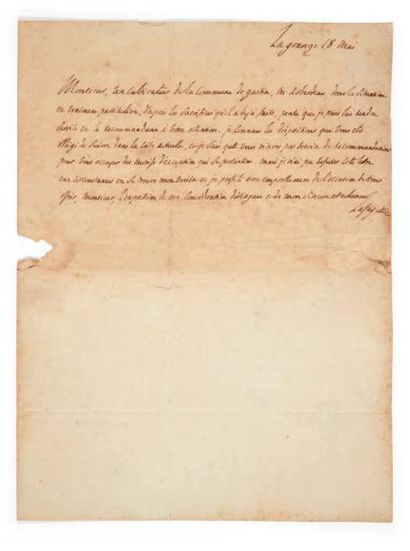 Lagrange 18 Mai
Monsieur, un cultivateur de la Commune de M. dont la situation
est vraiment particulière, d'après les sacrifices qu'il a déjà faits, pense que je puis lui rendre
service en le recommandant à votre attention. je connais les dispositions que vous êtes
obligé de suivre dans la et je sais que vous n'avez pas besoin de recommandation
pour vous occuper des motifs d'exception qui se présentent. mais je n'ai pu refuser cette lettre
aux circonstances où se trouve et je profite avec empressement de l'occasion de vous
offrir, monsieur, l'expression de ma considération distinguée et de mon sincère attachement
Lafayette